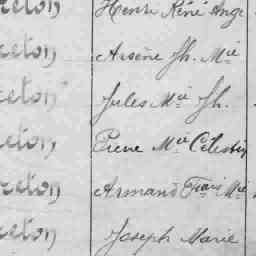 reton Henri Réné Ange
reton Arsène Jh. Mie
reton Jules Mie Jh.
reton Pierre Mie Célestin
reton Armand Frais Mie
reton Joseph Marie